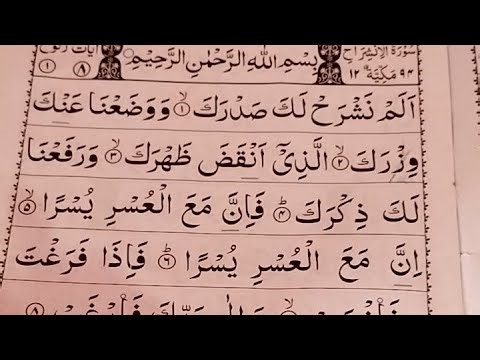 سُوْرَةُ الْاِنْشِرَاحِ
٩٤ مَكِّيَّةٌ ١٢
بِسْمِ اللّٰهِ الرَّحْمٰنِ الرَّحِيْمِ
اٰيَات رُكُوْع
٨ ١
اَلَمْ نَشْرَحْ لَكَ صَدْرَكَ ۙ﴿۱﴾ وَوَضَعْنَا عَنْكَ
وِزْرَكَ ۙ﴿۲﴾ الَّذِیْۤ اَنْقَضَ ظَهْرَكَ ۙ﴿۳﴾ وَرَفَعْنَا
لَكَ ذِكْرَكَ ؕ﴿۴﴾ فَاِنَّ مَعَ الْعُسْرِ يُسْرًا ۙ﴿۵﴾
اِنَّ مَعَ الْعُسْرِ يُسْرًا ؕ﴿۶﴾ فَاِذَا فَرَغْتَ
فَانْصَبْ ۙ وَاِلٰى رَبِّكَ فَارْغَبْ ﴿۸﴾